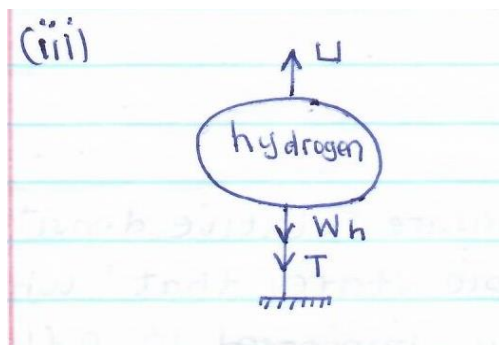 (iii)
U
hydrogen
Wh
T